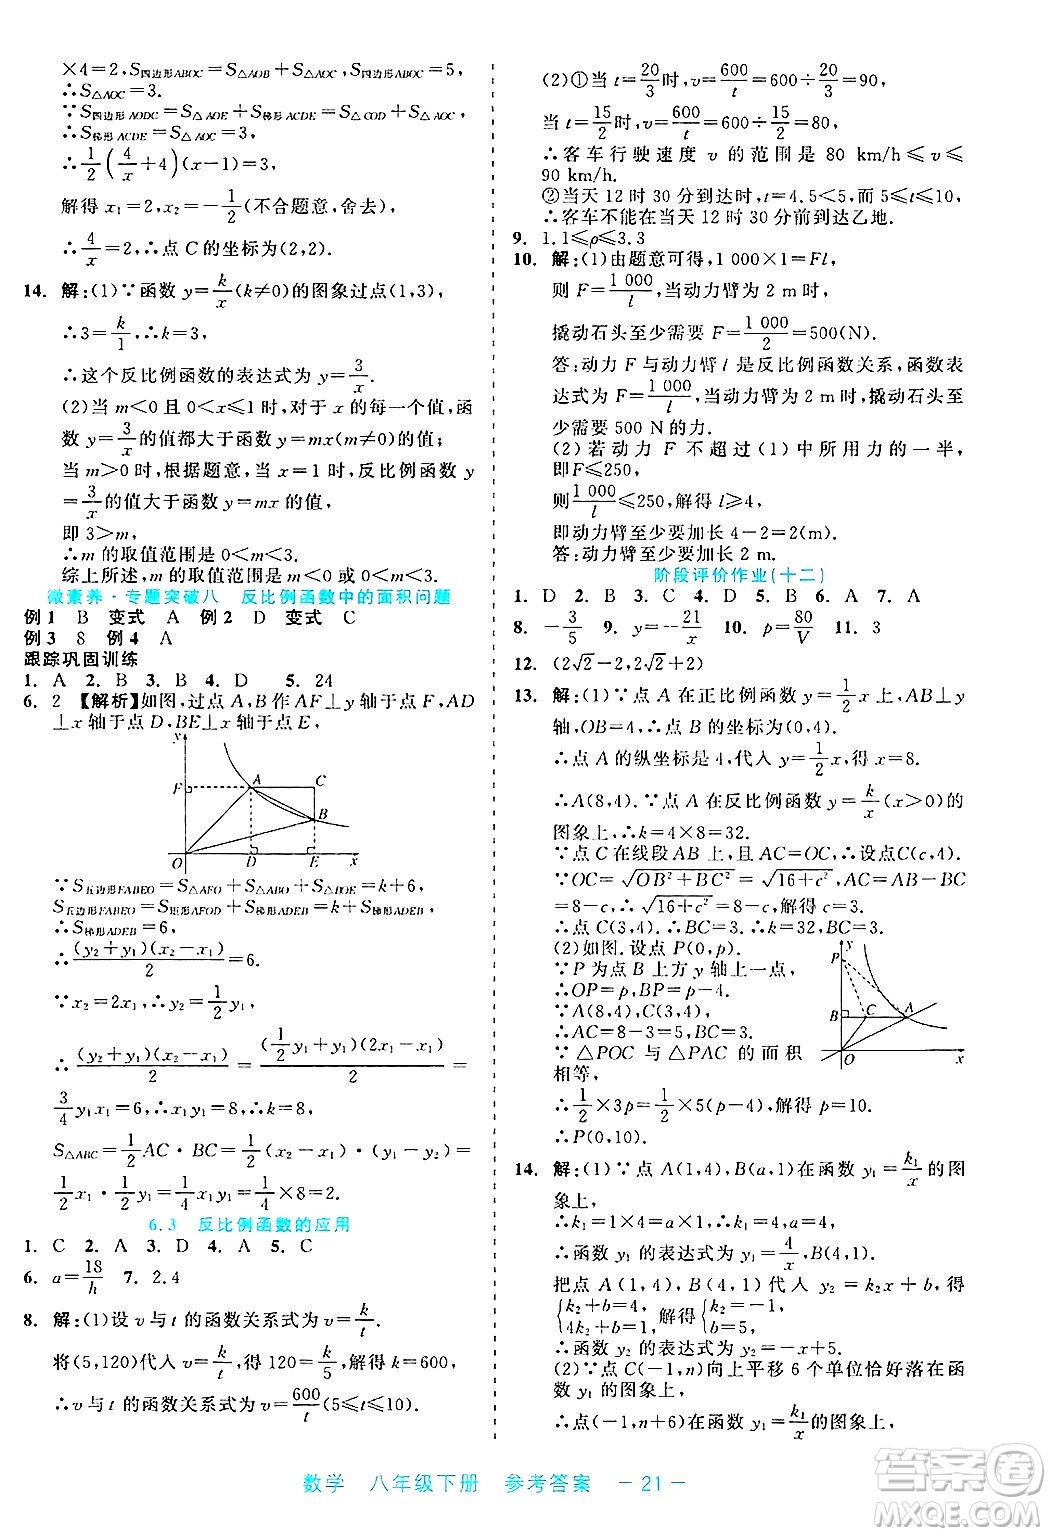 ×4=2,S四边形ABOC=S△AOB+S△AOC,S四边形ABOC=5,
∴S△AOC=3.
∵S四边形AODC=S△AOE+S梯形ACDE=S△COD+S△AOC,
∴S梯形ACDE=S△AOC=3,
∴1/2(4/x+4)(x-1)=3,
解得x₁=2,x₂=-1/2(不合题意,舍去),
∴4/x=2,∴点C的坐标为(2,2).
14. 解:(1)∵函数y=k/x(k≠0)的图象过点(1,3),
∴3=k/1,∴k=3,
∴这个反比例函数的表达式为y=3/x.
(2)当m<0且0<x≤1时,对于x的每一个值,函
数y=3/x的值都大于函数y=mx(m≠0)的值;
当m>0时,根据题意,当x=1时,反比例函数y=
3/x的值大于函数y=mx的值,
即3>m,
∴m的取值范围是0<m<3.
综上所述,m的取值范围是0<m<3或m<0.
微素养·专题突破八 反比例函数中的面积问题
例1 B 变式 A 例2 D 变式 C
例3 8 例4 A
跟踪巩固训练
1. A 2. B 3. B 4. D 5. 24
6. 2 【解析】如图,过点A,B作AF⊥y轴于点F,AD
⊥x轴于点D,BE⊥x轴于点E,
y
F A C
B
O D E x
∵S五边形FABEO=S△AFO+S△ABO+S△BOE=4+6+4,
S五边形FABEO=S矩形AFOD+S梯形ADEB=8+S梯形ADEB,
∴S梯形ADEB=6,
∴(y₂+y₁)(x₂-x₁)/2=6,
∵x₂=2x₁,∴y₂=1/2y₁,
∴(y₂+y₁)(x₂-x₁)/2=(1/2y₁+y₁)(2x₁-x₁)/2=
3/4y₁x₁=6,∴x₁y₁=8,∴k=8,
S△ABC=1/2AC·BC=1/2(x₂-x₁)·(y₁-y₂)=
1/2x₁·1/2y₁=1/4x₁y₁=1/4×8=2.
6.3 反比例函数的应用
1. C 2. A 3. D 4. A 5. C
6. a=18/h 7. 2.4
8. 解:(1)设v与t的函数关系式为v=k/t,
将(5,120)代入v=k/t,得120=k/5,解得k=600,
∴v与t的函数关系式为v=600/t(5≤t≤10).
(2)①当t=20/3时,v=600/t=600÷20/3=90,
当t=15/2时,v=600/t=600÷15/2=80,
∴客车行驶速度v的范围是80 km/h≤v≤
90 km/h.
②当天12时30分到达时,t=4.5<5,而5≤t≤10,
∴客车不能在当天12时30分前到达乙地.
9. 1.1≤ρ≤3.3
10. 解:(1)由题意可得,1 000×1=Fl,
则F=1 000/l,当动力臂为2 m时,
撬动石头至少需要F=1 000/2=500(N).
答:动力F与动力臂l是反比例函数关系,函数表
达式为F=1 000/l,当动力臂为2 m时,撬动石头至
少需要500 N的力.
(2)若动力F不超过(1)中所用力的一半,
即F≤250,
则1 000/l≤250,解得l≥4,
即动力臂至少要加长4-2=2(m).
答:动力臂至少要加长2 m.
阶段评价作业(十二)
1. D 2. B 3. C 4. D 5. B 6. A 7. A
8. -3/5 9. y=-21/x 10. p=80/V 11. 3
12. (2√2-2,2√2+2)
13. 解:(1)∵点A在正比例函数y=1/2x上,AB⊥y
轴,OB=4,∴点B的坐标为(0,4).
∴点A的纵坐标是4,代入y=1/2x,得x=8.
∴A(8,4).∵点A在反比例函数y=k/x(x>0)的
图象上,∴k=4×8=32.
∵点C在线段AB上,且AC=OC,∴设点C(c,4).
∵OC=√(OB²+BC²)=√(16+c²),AC=AB-BC
=8-c,∴√(16+c²)=8-c,解得c=3.
∴点C(3,4).∴BC=3.∴k=32.
(2)如图.设点P(0,p).
∵P为点B上方y轴上一点,
∴OP=p,BP=p-4.
∵A(8,4),C(3,4),
∴AC=8-3=5.
∵△POC与△PAC的面积
相等,
y
P
B C A
O x
∴1/2×3p=1/2×5(p-4),解得p=10.
∴P(0,10).
14. 解:(1)∵点A(1,4),B(a,1)在函数y₁=k₁/x的图
象上,
∴k₁=4,a=4.
∴函数y₁的表达式为y=4/x,B(4,1).
把点A(1,4),B(4,1)代入y₂=k₂x+b,得
{k₂+b=4, 4k₂+b=1, 解得{k₂=-1, b=5,
∴函数y₂的表达式为y₂=-x+5.
(2)∵点C(-1,n)向上平移6个单位恰好落在函
数y₁的图象上,
∴点(-1,n+6)在函数y₁=k₁/x的图象上,
数学 八年级下册 参考答案 -21-
答案圈
MXQE.COM